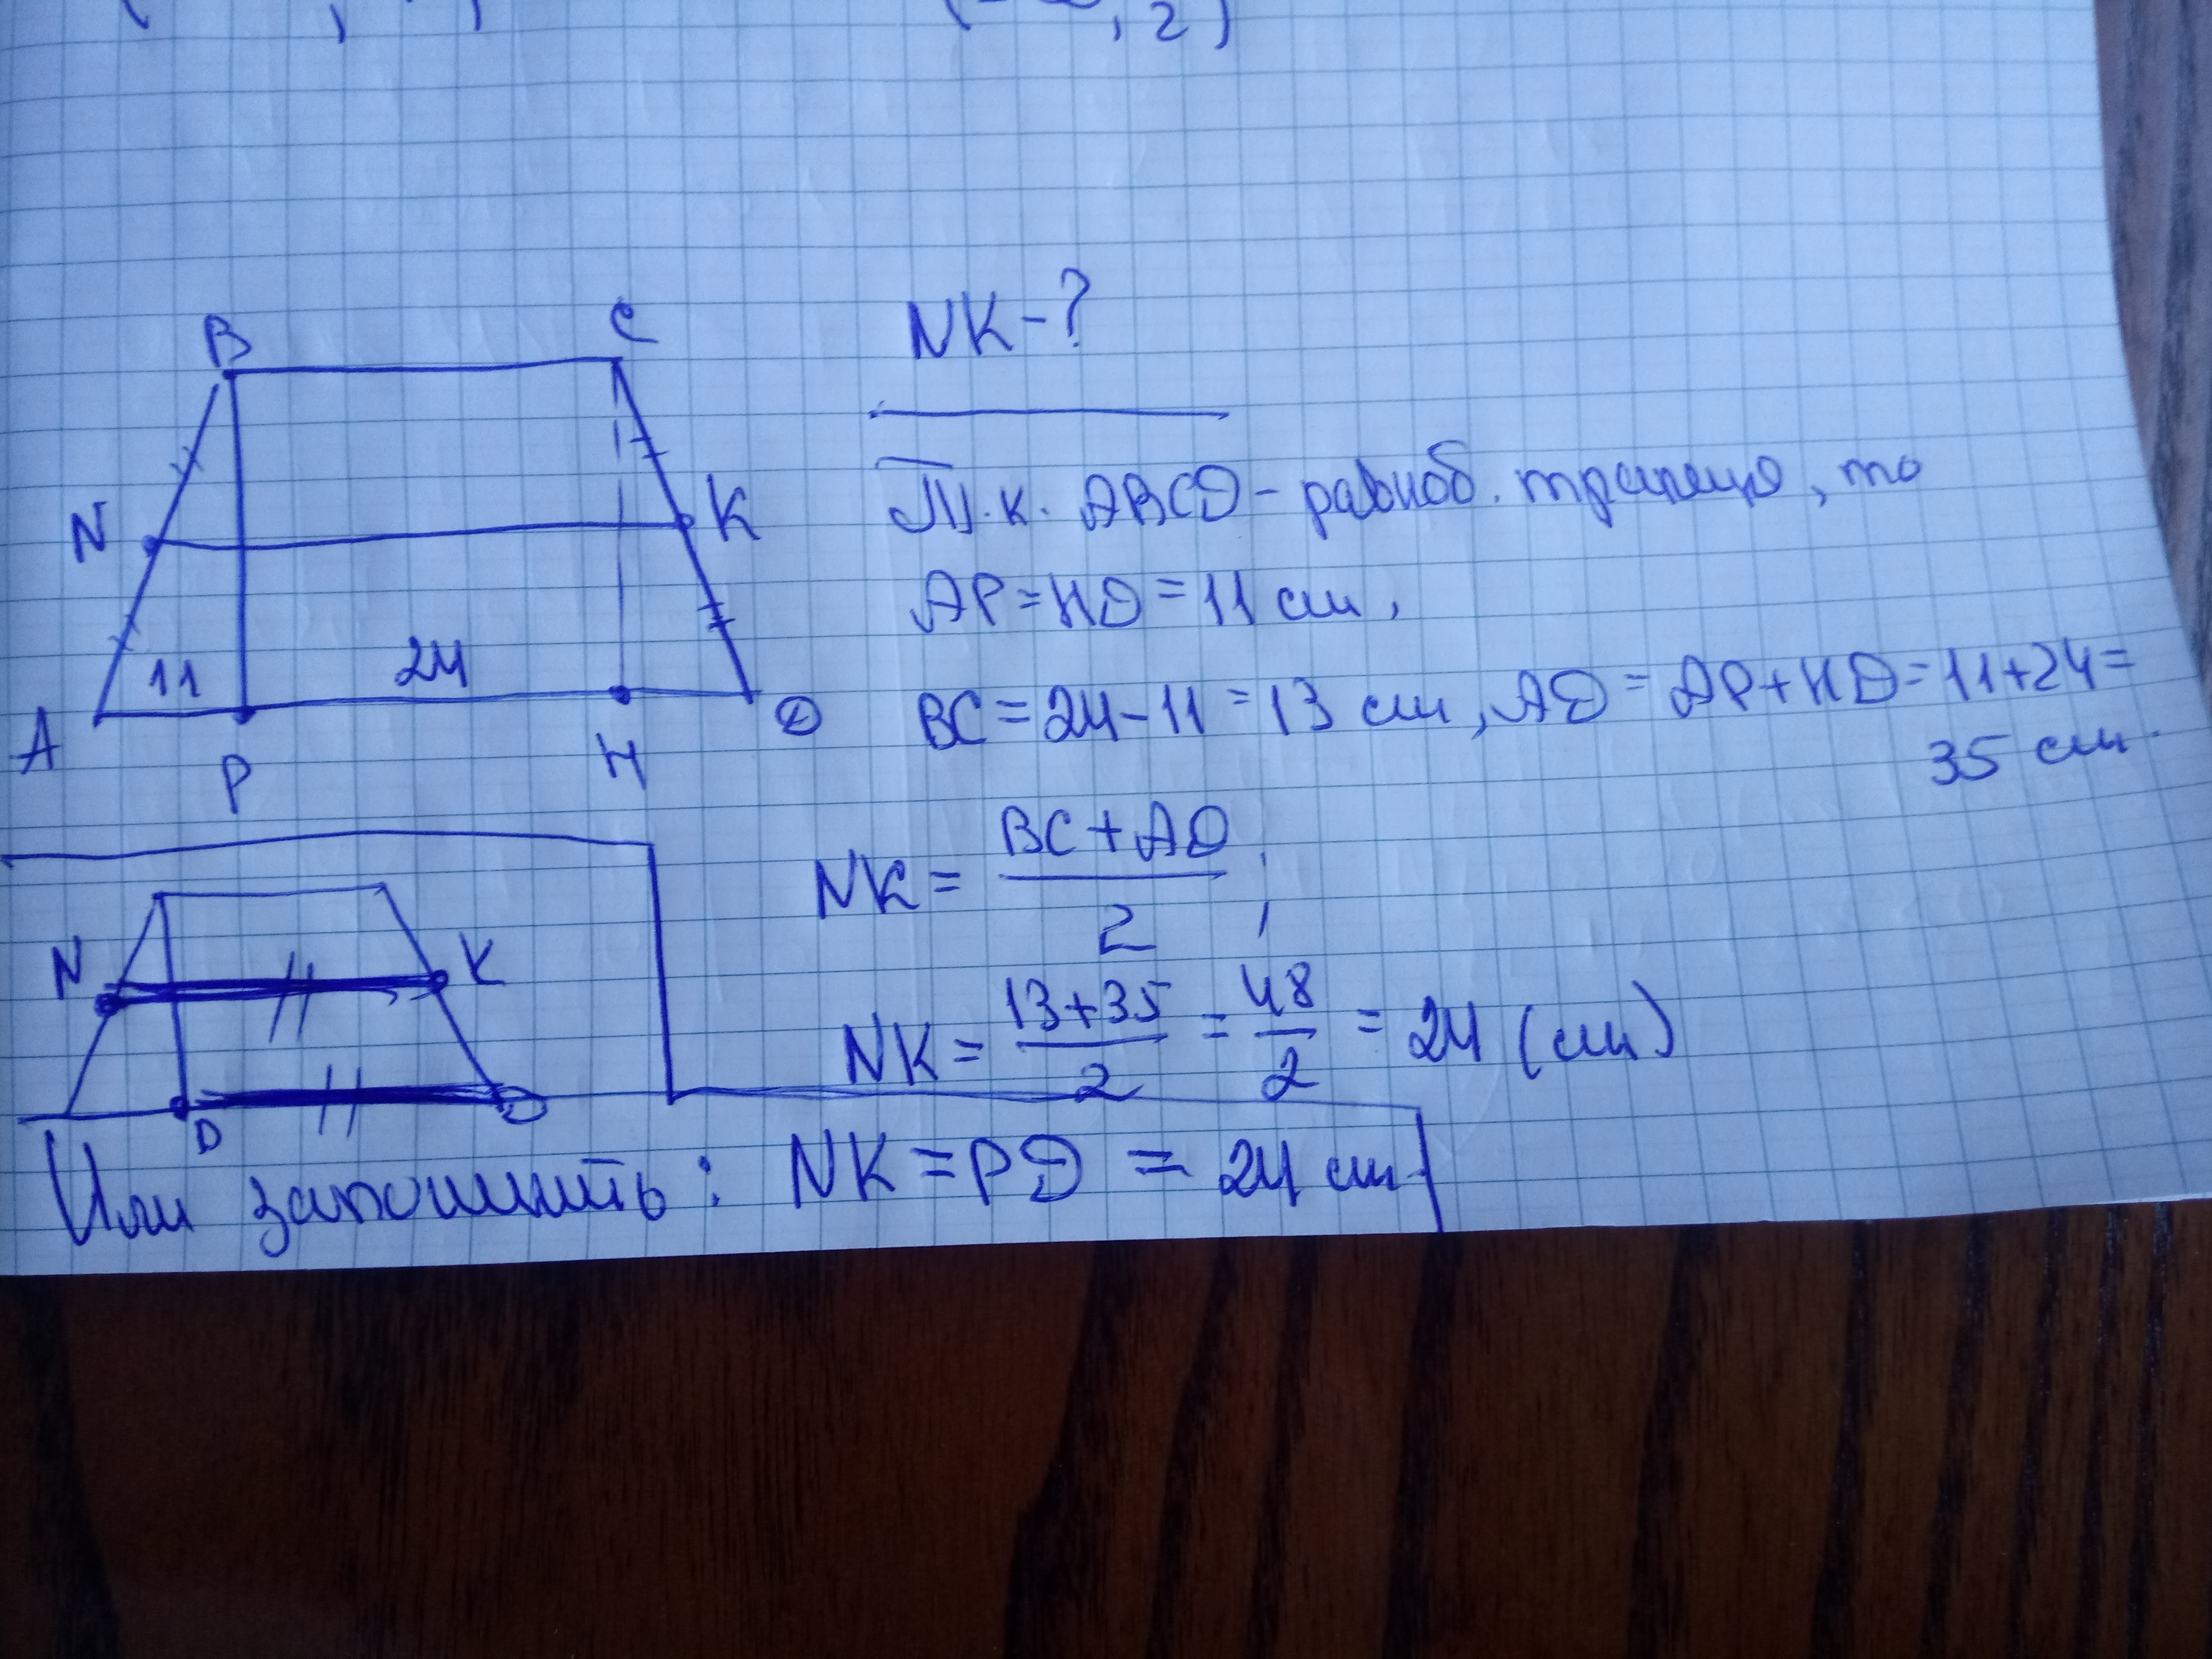 , 2)
B
C
NK-?
N
K
Т.к. ABCD - равноб. трапеция, то
AP=HD=11 см,
11
24
A
P
H
D
BC=24-11=13 см, AD=AP+HD=11+24=
35 см.
NK= BC+AD / 2,
N
K
NK= 13+35 / 2 = 48 / 2 = 24 (см)
D
D
Или запомнить: NK=PD = 24 см